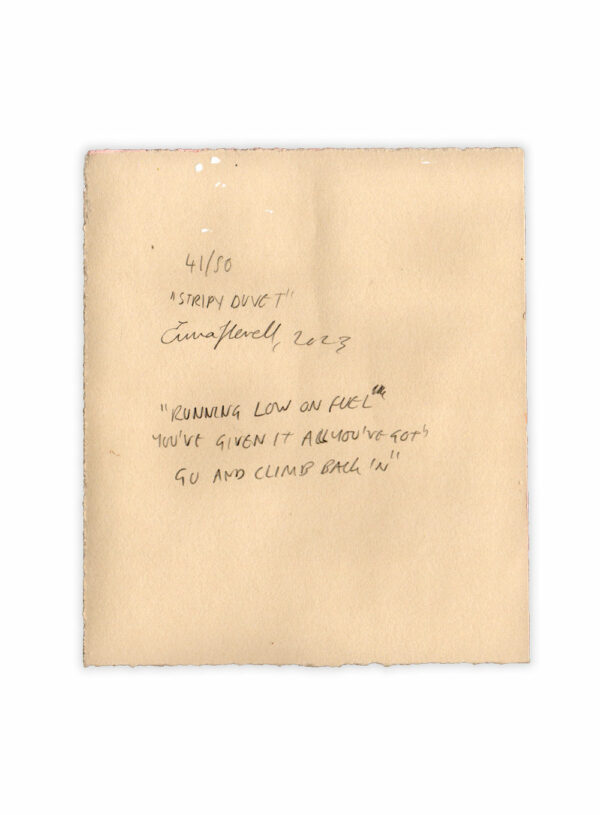 41/50
"STRIPY DUVET"
2023
"RUNNING LOW ON FUEL"
YOU'VE GIVEN IT ALL YOU'VE GOT
GO AND CLIMB BACK IN"